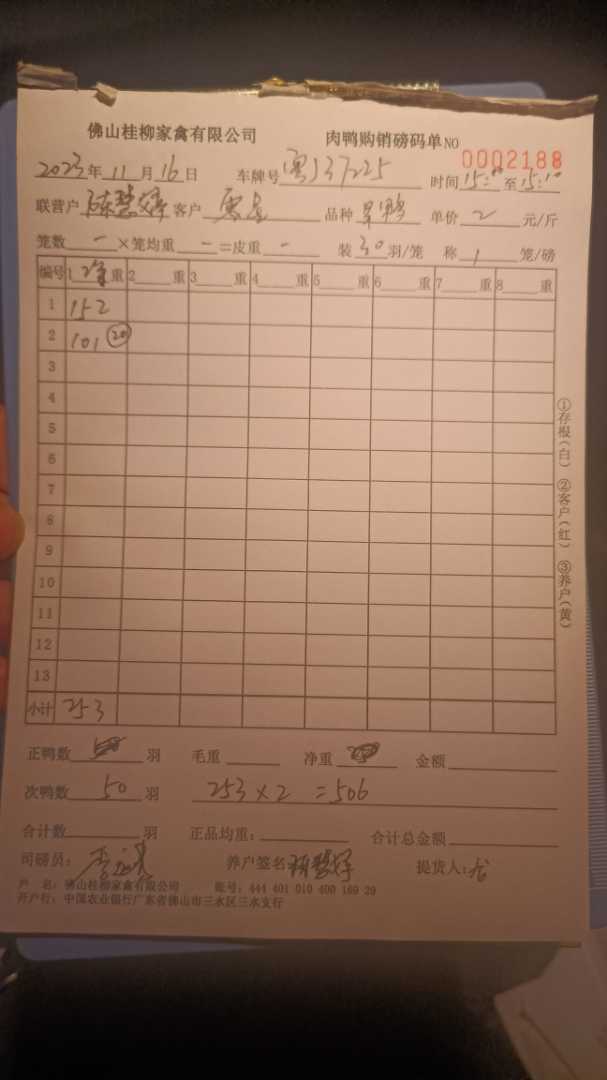 佛山桂柳家禽有限公司 肉鸭购销磅码单 NO 0002188
2023年 11 月 16 日 车牌号 粤J37225 时间 15:00 至 15:10
联营户 陈慧婷 客户 品种 单价 2 元/斤
笼数 一 ×笼均重 一 =皮重 一 装 30 羽/笼 称 1 笼/磅
编号 1 净 重 2 重 3 重 4 重 5 重 6 重 7 重 8 重
1 152
2 101 (20)
3
4
5
6
7
8
9
10
11
12
13
小计 253
①存根(白) ②客户(红) ③养户(黄)
正鸭数 羽 毛重 净重 金额
次鸭数 50 羽 253×2=506
合计数 羽 正品均重: 合计总金额
司磅员: 养户签名 陈慧婷 提货人:
户 名: 佛山桂柳家禽有限公司 账号: 444 401 010 400 169 29
开户行: 中国农业银行广东省佛山市三水区三水支行